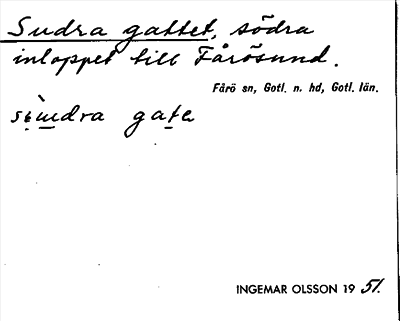 Sudra gattet, södra
inloppet till Fårösund.
Fårö sn, Gotl. n. hd, Gotl. län.
gata
INGEMAR OLSSON 19 51.